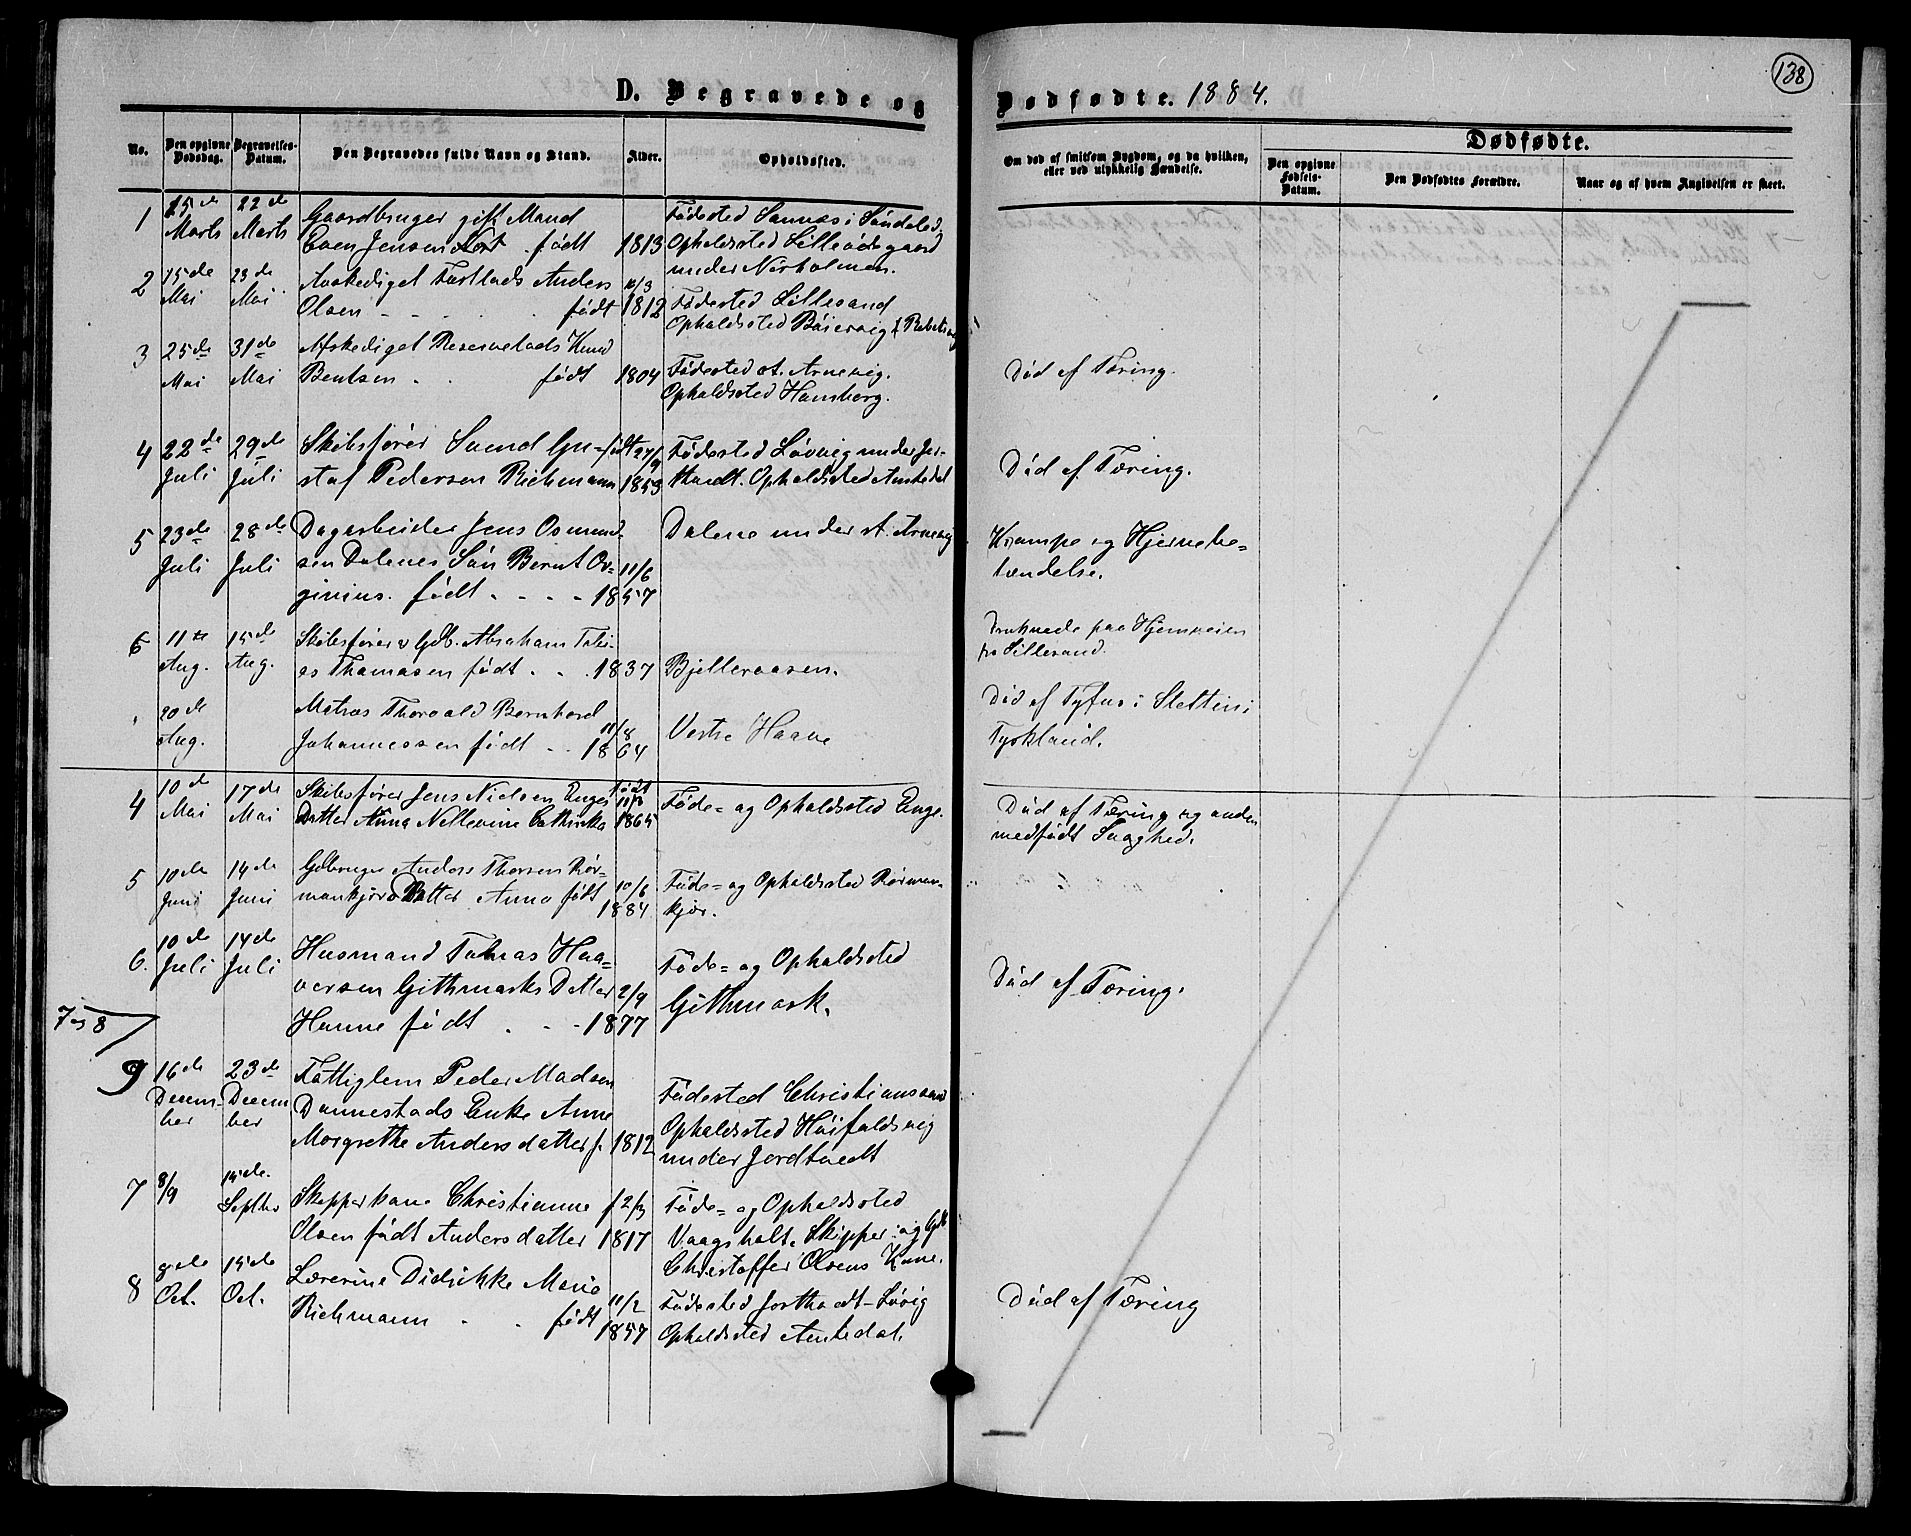 138
D. Begravede og Dødfødte. 1884.
No.
Den opgivne Dødsdag.
Begravelses-Datum.
Den Begravedes fulde Navn og Stand.
Alder.
Opholdssted.
Om død af smitsom Sygdom, og da hvilken,
eller ved ulykkelig Hændelse.
Dødfødte.
Den opgivne Fødsels-Datum.
Den Dødfødtes Forældre.
Naar og af hvem Anginelsen er skeet.
1 15de Marts 22de Marts
Gaardbruger gift Mand
Even Jensen født 1813
Fødested Sannes i Søndeled.
Opholdssted Lilleødegaard
under Nerholmen.
2 15de Mai 23de Mai
Avskediget Anders
Olsen - - . . født 1812
Fødested Lillesand
Opholdssted
3 25de Mai 31de Mai
Afskediget Knud
Bentsen . . født 1804
Fødested st. Arnevig.
Opholdssted Hamborg.
Död af Tæring.
4 22de Juli 29de Juli
Skibsfører Svend Gu-
staf Pedersen Richmann
født 27/9 1853
Fødested Løvvig under Jor-
thvedt. Opholdssted Amtedal
Död af Tæring.
5 23de Juli 28de Juli
Dagarbeider Jens Osmund
sen Dalenes Sön Bernt Or-
ginius. født . - - - 11/6 1857
Dalene under st. Arnevig
Krampe og Hjernebe=
tændelse.
6 11te Aug. 15de Aug.
Skibsfører & Gdb. Abraham Tobi-
as Thomasen født . . . 1837
Bjelleraasen.
Druknede paa Hjemveien
fra Lillesand.
20de Aug.
Matros Thorvald Bernhard
Johannessen født . . 11/8 1864
Vestre Haave
Död af Tyfus i Stettin i
Tyskland.
4 10de Mai 17de Mai
Skibsfører Jens Nielsen Enges
Datter Anna Nellevine Cathinka
født 1865
Føde= og Opholdssted Enge.
Död af Tæring og anden
medfödt Svaghed.
5 10de Juni 14de Juni
Gdbruger Anders Thorsen Rör-
mankjærs Datter Anna født 10/6 1884
Føde= og Opholdssted Rörman-
kjær.
6. 10de Juli 14de Juli
Husmand Tobias Haa=
versen Githmarks Datter
Hanne født . . - 2/9 1877
Føde= og Opholdssted
Githmark.
Död af Tæring.
7 og 8
9 16de December 23de December
Fattiglem Peder Madsen
Dannestads Enke Anne
Margrethe Andersdatter f. 1812
Fødested Christianssand
Opholdssted Höifaldsvig
under Jordtvedt
7 8/9 15de Septbr
Skipperkone Christianne
Olsen født Andersdatter
f 2/3 1817
Føde= og Opholdssted
Vaagsholt. Skipper og Gdb
Christoffer Olsens Kone.
8 8de Oct. 15de Oct.
Lærerine Didrikke Marie
Richmann . . født 11/2 1857
Fødested Jorthvedt-Løvig
Opholdssted Amtedal.
Död af Tæring